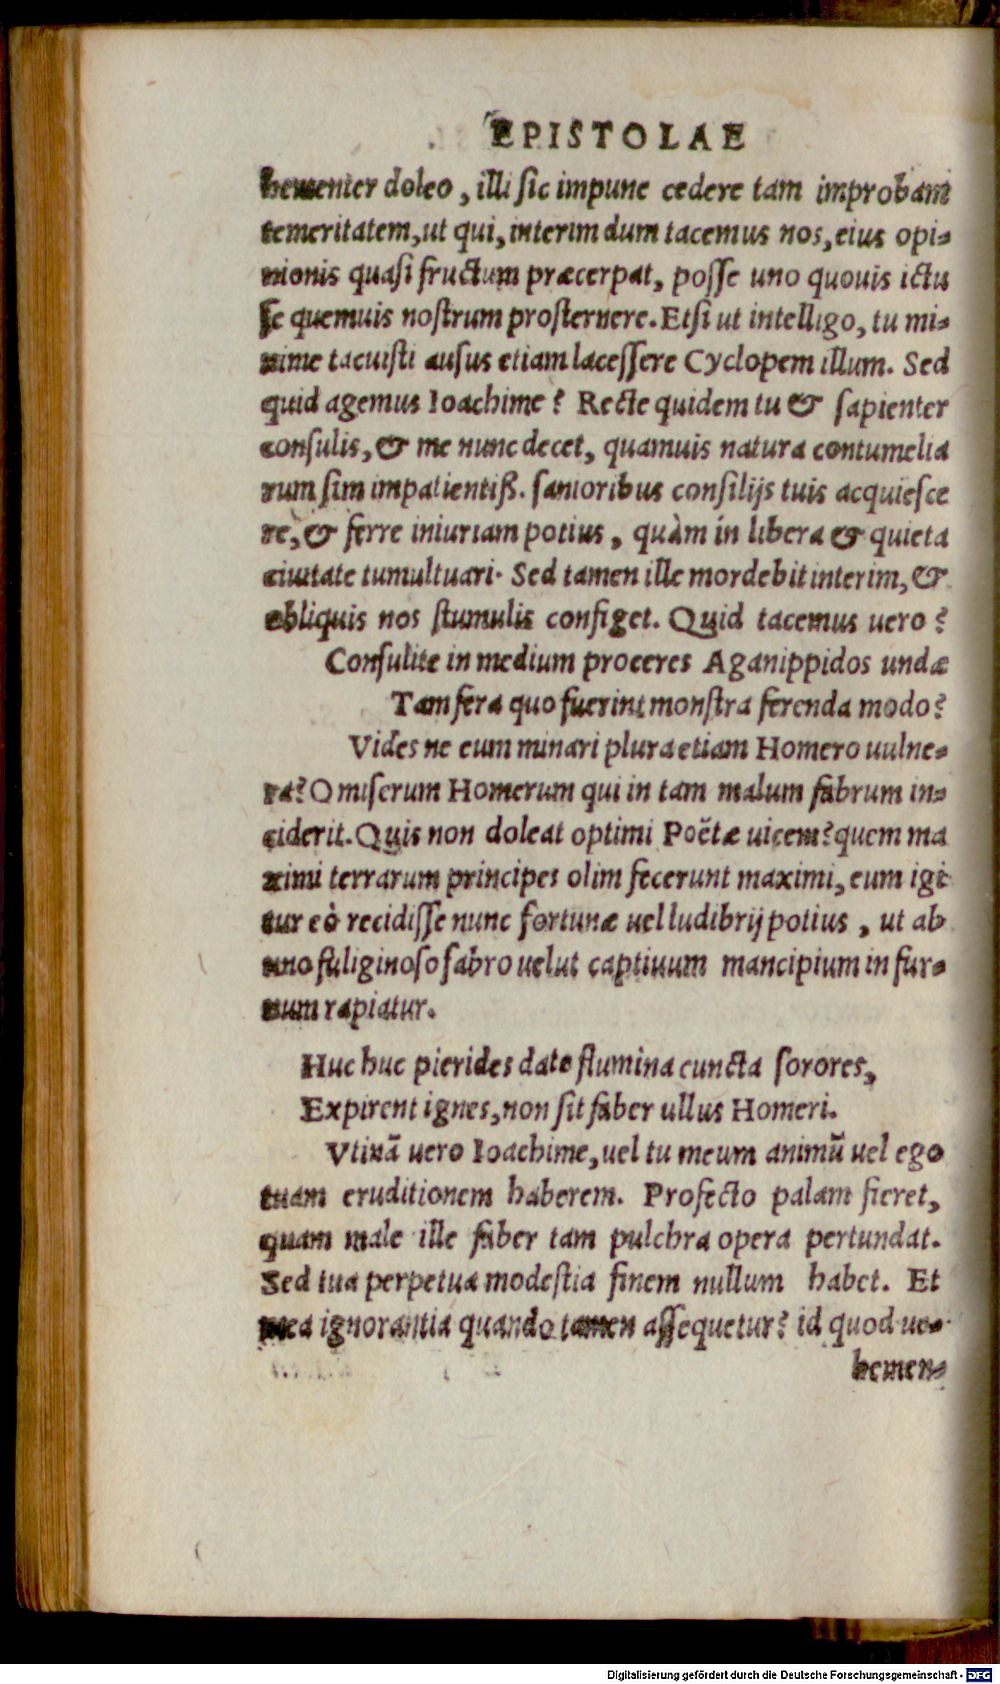 EPISTOLAE
hementer doleo, illi sic impune cedere tam improbam
temeritatem, ut qui, interim dum tacemus nos, eius opi-
nionis quasi fructum præcerpat, posse uno quouis ictu
se quemuis nostrum prosternere. Etsi ut intelligo, tu mi-
nime tacuisti ausus etiam lacessere Cyclopem illum. Sed
quid agemus Ioachime? Recte quidem tu & sapienter
consulis, & me nunc decet, quamuis natura contumelia
rum sim impatientiß. sanioribus consilijs tuis acquiesce
re, & ferre iniuriam potius, quàm in libera & quieta
ciuitate tumultuari. Sed tamen ille mordebit interim, &
obliquis nos stumulis configet. Quid tacemus uero?
Consulite in medium proceres Aganippidos undæ
Tam fera quo fuerint monstra ferenda modo?
Vides ne eum minari plura etiam Homero uulne-
ra? O miserum Homerum qui in tam malum fabrum in-
ciderit. Quis non doleat optimi Poëtæ uicem? quem ma
ximi terrarum principes olim fecerunt maximi, eum igi
tur eò recidisse nunc fortunæ uel ludibrij potius, ut ab
uno fuliginoso fabro uelut captiuum mancipium in fur-
num rapiatur.
Huc huc pierides date flumina cuncta sorores,
Expirent ignes, non sit faber ullus Homeri.
Vtinã uero Ioachime, uel tu meum animũ uel ego
tuam eruditionem haberem. Profecto palam fieret,
quam male ille faber tam pulchra opera pertundat.
Sed tua perpetua modestia finem nullum habet. Et
mea ignorantia quando tamen assequetur? id quod ue-
hemen-
Digitalisierung gefördert durch die Deutsche Forschungsgemeinschaft - DFG